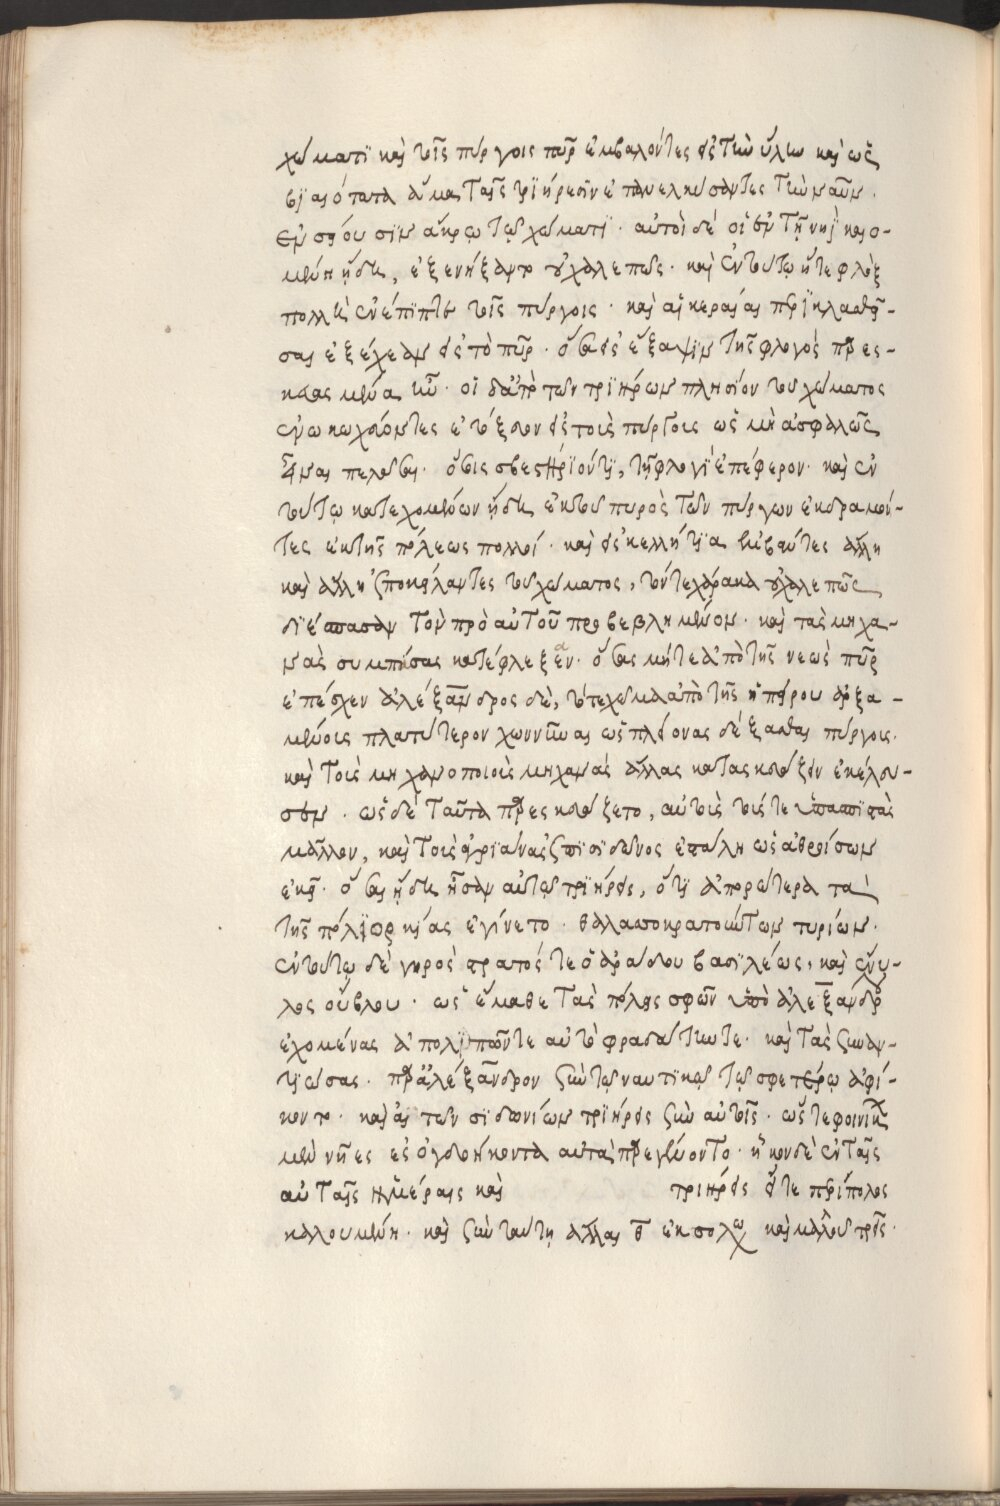 χώματι καὶ τοῖς πύργοις πῦρ ἐμβαλόντες ἐς τὴν ὕλην καὶ ὡς
βιαιότατα ἅμα ταῖς τριήρεσιν ἐπανελκύσαντες τὴν ναῦν.
ἐν σείουσιν ἄκρῳ τῷ χώματι. αὐτοὶ δὲ οἱ ἐν τῇ νηὶ καιο-
μένη ἤδη, ἐξενήξαντο οὐ χαλεπῶς. καὶ ἐν τούτῳ ἥτε φλὸξ
πολλὴ ἐνέπιπτε τοῖς πύργοις. καὶ αἱ κεραῖαι περικλασθεῖ-
σαι ἐξέχεαν ἐς τὸ πῦρ. ὅσα ἐς ἔξαψιν τῆς φλογὸς παρεσ-
κευασμένα ἦν. οἱ δ' ἀπὸ τῶν τριήρων πλησίον τοῦ χώματος
ἀνωκωχεύοντες ἐτόξευον ἐς τοὺς πύργους ὡς μὴ ἀσφαλῶς
εἶναι πελάσαι. ὅσοις σβεστήριόν τι, τῇ φλογὶ ἐπέφερον. καὶ ἐν
τούτῳ κατεχομένων ἤδη ἐκ τοῦ πυρὸς τῶν πύργων ἐκδραμόν-
τες ἐκ τῆς πόλεως πολλοί. καὶ ἐς κελλήτια ἐμβάντες ἄλλη
καὶ ἄλλη ἐποκείλαντες τοῦ χώματος, τόν τε χάρακα οὐ χαλεπῶς
διέσπασαν τὸν πρὸ αὐτοῦ προβεβλημένον. καὶ τὰς μηχα-
νὰς συμπάσας κατέφλεξεν. ὅσας μήτε ἀπὸ τῆς νεὼς πῦρ
ἐπέσχεν ἀλέξανδρος δὲ, τότε χῶμα ἀπὸ τῆς ἠπείρου ἀρξα-
μένους πλατύτερον χωννύναι ὡς πλέονας δέξασθαι πύργους.
καὶ τοὺς μηχανοποιοὺς μηχανὰς ἄλλας κατασκευάζειν ἐκέλευ-
σεν. ὡς δὲ ταῦτα παρεσκευάζετο, αὐτὸς τούς τε ὑπασπιστὰς
μᾶλλον, καὶ τοὺς ἀγριάνας ἐπὶ σιδῶνος ἐστάλη ὡς ἀθροίσων
ἐκεῖ. ὅσαι ἤδη ἦσαν αὐτῷ τριήρεις, ὅτι ἀπορώτερα τὰ
τῆς πολιορκίας ἐγίνετο. θαλασσοκρατούντων τυρίων.
ἐν τούτῳ δὲ γηρόστρατός τε ὁ ἀράδου βασιλέως, καὶ ἔνυ-
λος ὁ βύβλου. ὡς ἔμαθε τὰς πόλεις σφῶν ὑπὸ ἀλεξάνδρου
ἐχομένας ἀπολιπόντε αὐτοφραδάτην τε. καὶ τὰς ξυναυ-
τιῶσας. παρ' ἀλέξανδρον ξὺν τῷ ναυτικῷ τῷ σφετέρῳ ἀφί-
κοντο. καὶ αἱ τῶν σιδωνίων τριήρεις ξὺν αὐτοῖς. ὥστε φοινίκων
μὲν νῆες ἐς ὀγδοήκοντα αὐτὰ παρεγένοντο. ἧκον δὲ ἐν ταῖς
αὐταῖς ἡμέραις καὶ τριήρεις ὅτε περίπολος
καλουμένη. καὶ ξὺν ταύτῃ ἄλλαι θ ἐκ σόλων καὶ μαλλοῦ τρεῖς.